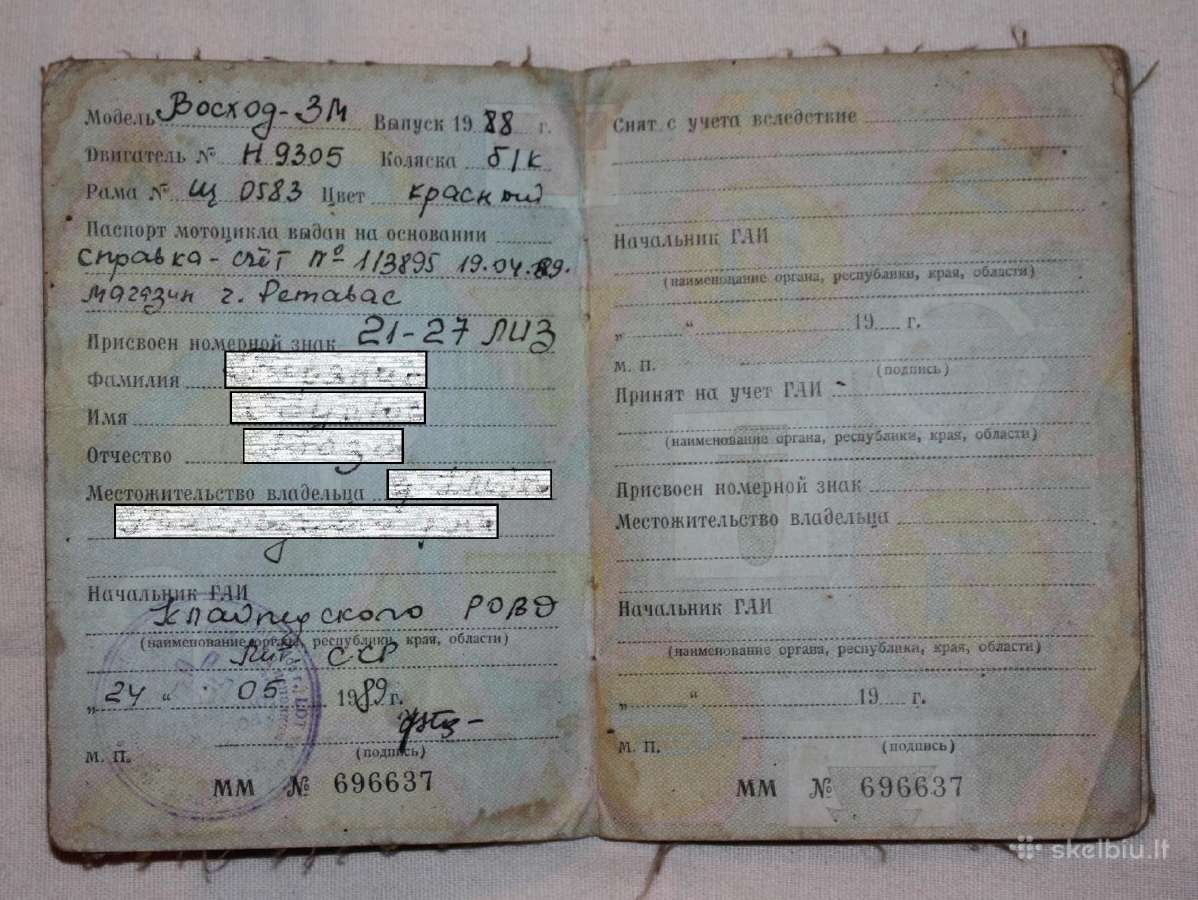 Модель Восход-3М Выпуск 1988 г.
Двигатель № Н 9305 Коляска б/к
Рама № Щ 0583 Цвет красный
Паспорт мотоцикла выдан на основании
справка-счёт № 113895 19.04.89.
магазин г. Ретавас
Присвоен номерной знак 21-27 ЛИЗ
Фамилия
Имя
Отчество
Местожительство владельца
Начальник ГАИ
Клайпедского РОВД
(наименование органа, республики, края, области)
Лит. ССР
„24“ 05 1989 г.
м. п.
(подпись)
ММ № 696637
Снят с учета вследствие
Начальник ГАИ
(наименование органа, республики, края, области)
„ “ 19 г.
м. п.
(подпись)
Принят на учет ГАИ
(наименование органа, республики, края, области)
Присвоен номерной знак
Местожительство владельца
Начальник ГАИ
(наименование органа, республики, края, области)
„ “ 19 г.
м. п.
(подпись)
ММ № 696637
skelbiu.lt